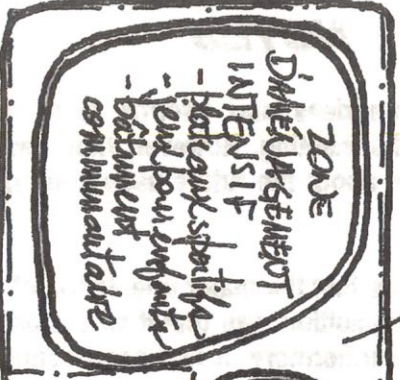 ZONE
D'AMÉNAGEMENT
INTENSIF
- plateaux sportifs
- jeux pour enfants
- bâtiment
communautaire